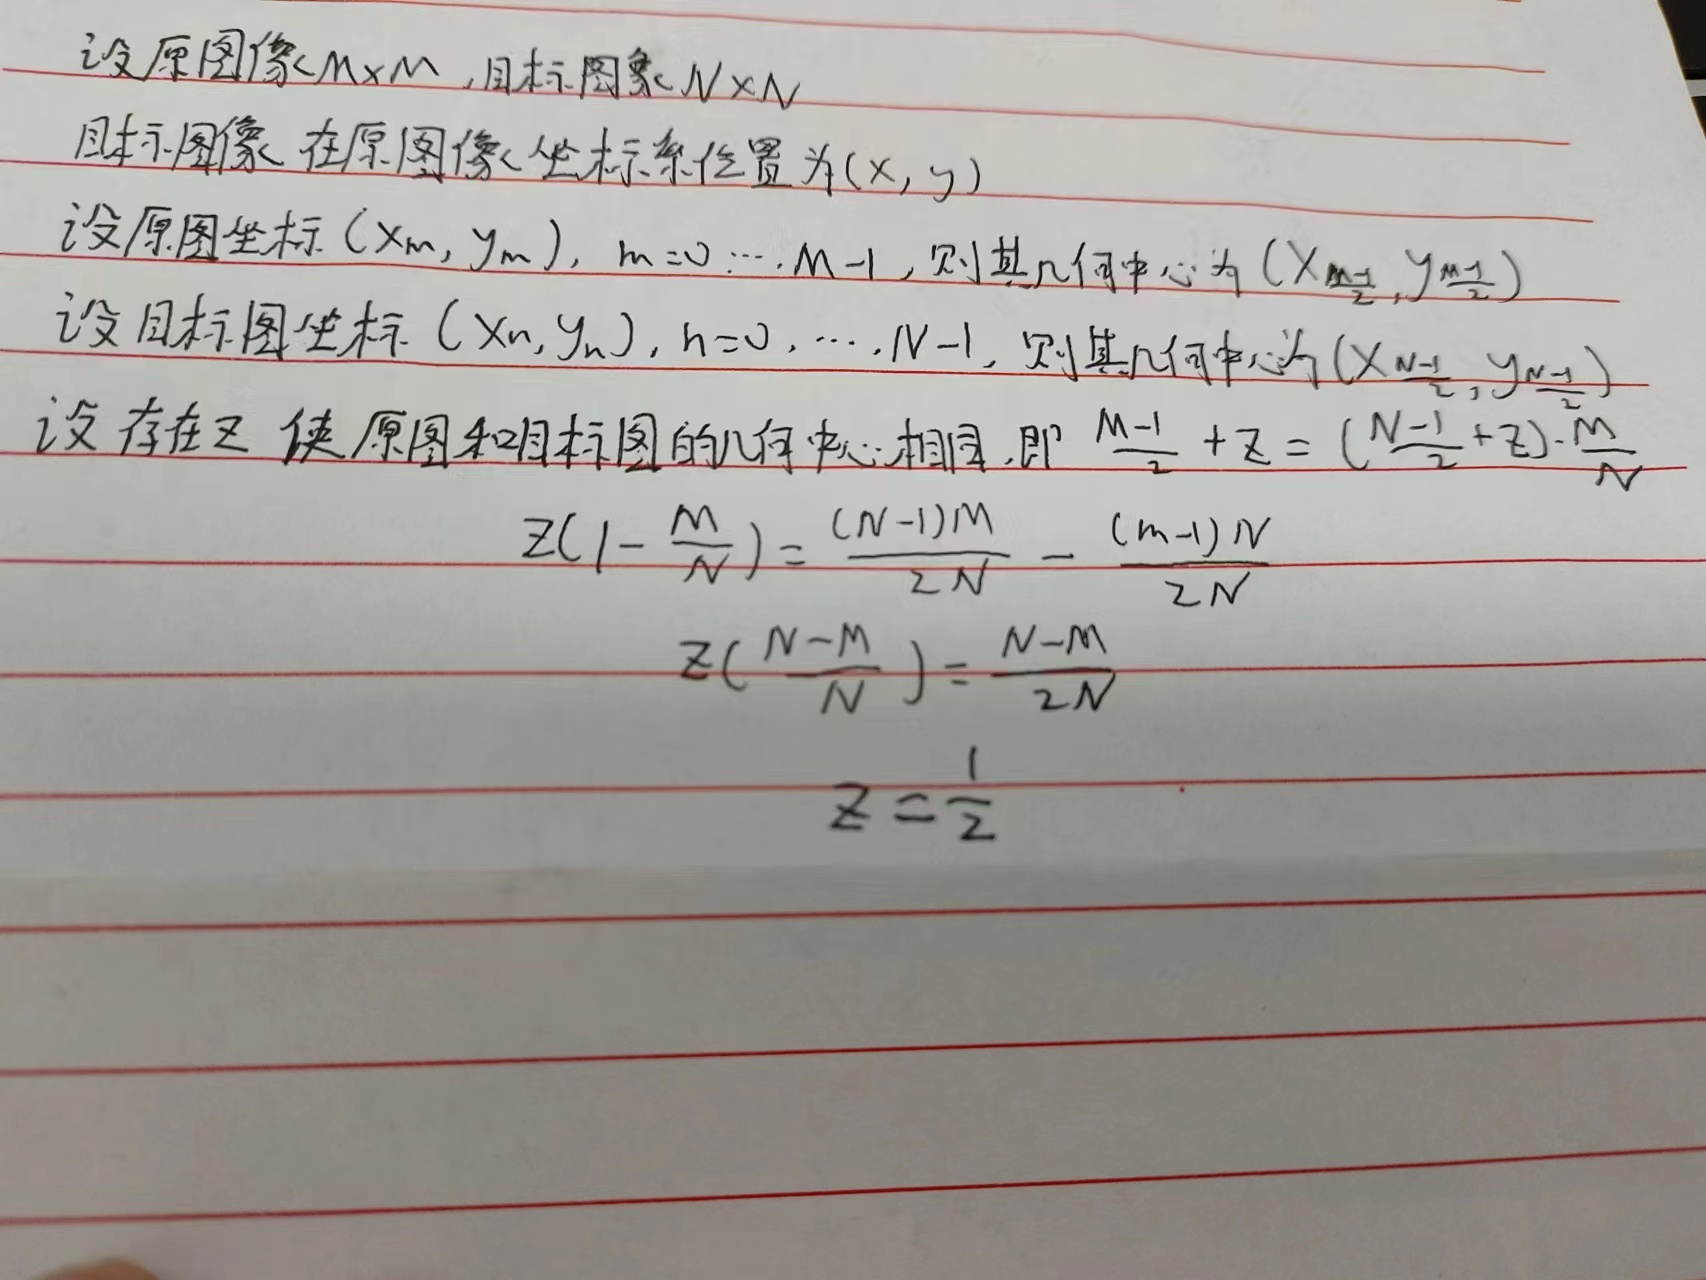 设原图像M×M,目标图象N×N
目标图像在原图像坐标系位置为(x,y)
设原图坐标(xm,ym),m=0….M-1,则其几何中心为(x(M-1)/2,y(M-1)/2)
设目标图坐标(xn,yn),n=0,….N-1,则其几何中心为(x(N-1)/2,y(N-1)/2)
设存在Z使原图和目标图的几何中心相同,即 (M-1)/2+Z=((N-1)/2+Z)·M/N
Z(1-M/N)=(N-1)M/2N-(m-1)N/2N
Z((N-M)/N)=(N-M)/2N
Z=1/2